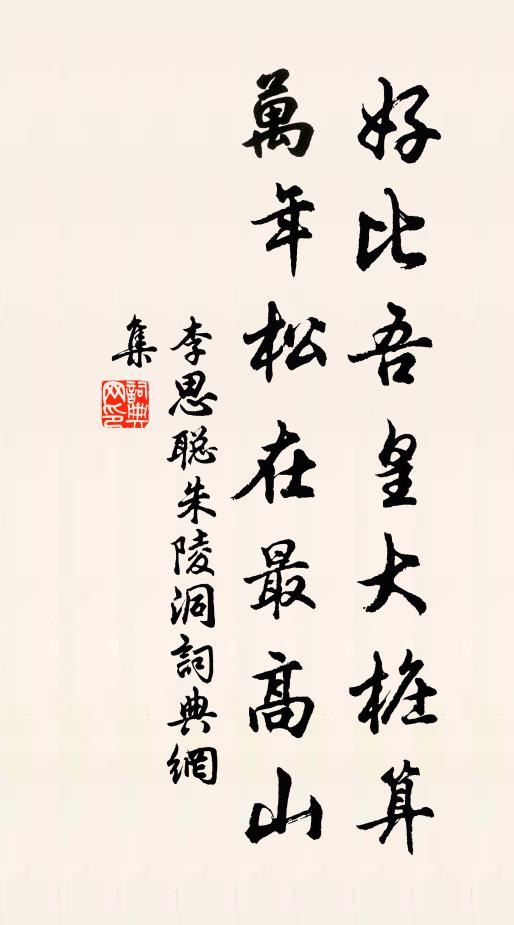 好比吾皇大桩算
萬年松在最高山
李思聪朱陵洞詞典網
集
詞典
网印